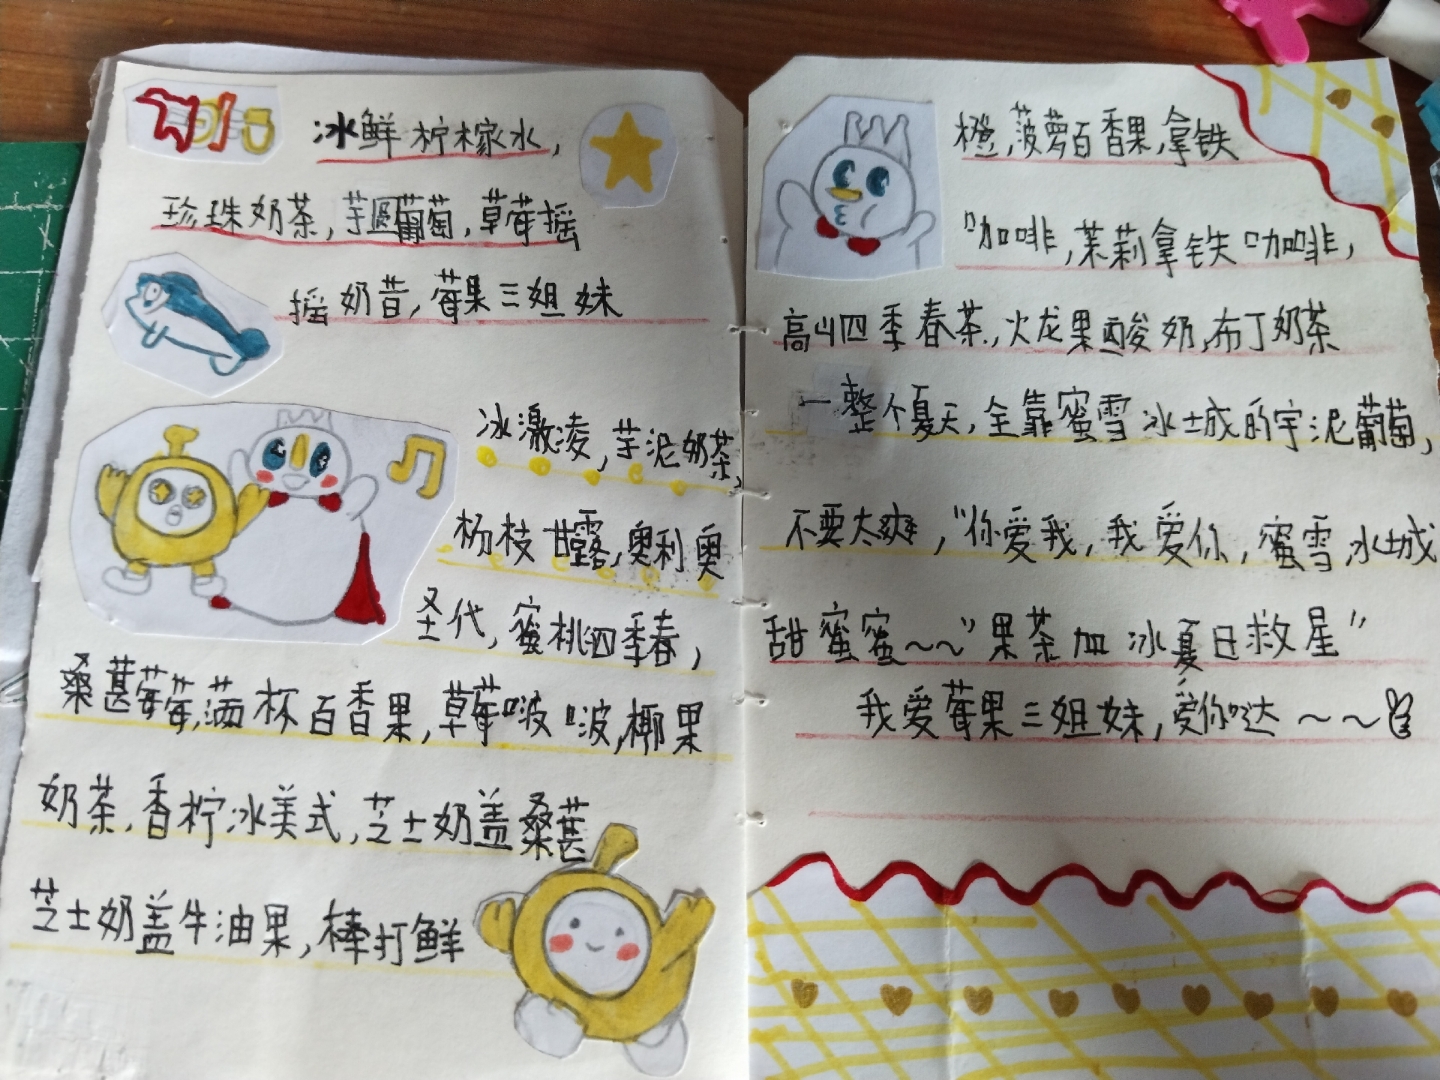 冰鲜柠檬水，
珍珠奶茶，芋圆葡萄，草莓摇
摇奶昔，莓果三姐妹
冰激凌，芋泥奶茶，
杨枝甘露，奥利奥
圣代，蜜桃四季春，
桑葚莓莓，满杯百香果，草莓啵啵，椰果
奶茶，香柠冰美式，芝士奶盖桑葚
芝士奶盖牛油果，棒打鲜
橙，菠萝百香果，拿铁
咖啡，茉莉拿铁咖啡，
高山四季春茶，火龙果酸奶，布丁奶茶
一整个夏天，全靠蜜雪冰城的芋泥葡萄，
不要太爽，“你爱我，我爱你，蜜雪冰城
甜蜜蜜～～”果茶加冰夏日救星”
我爱莓果三姐妹，爱你哒～～